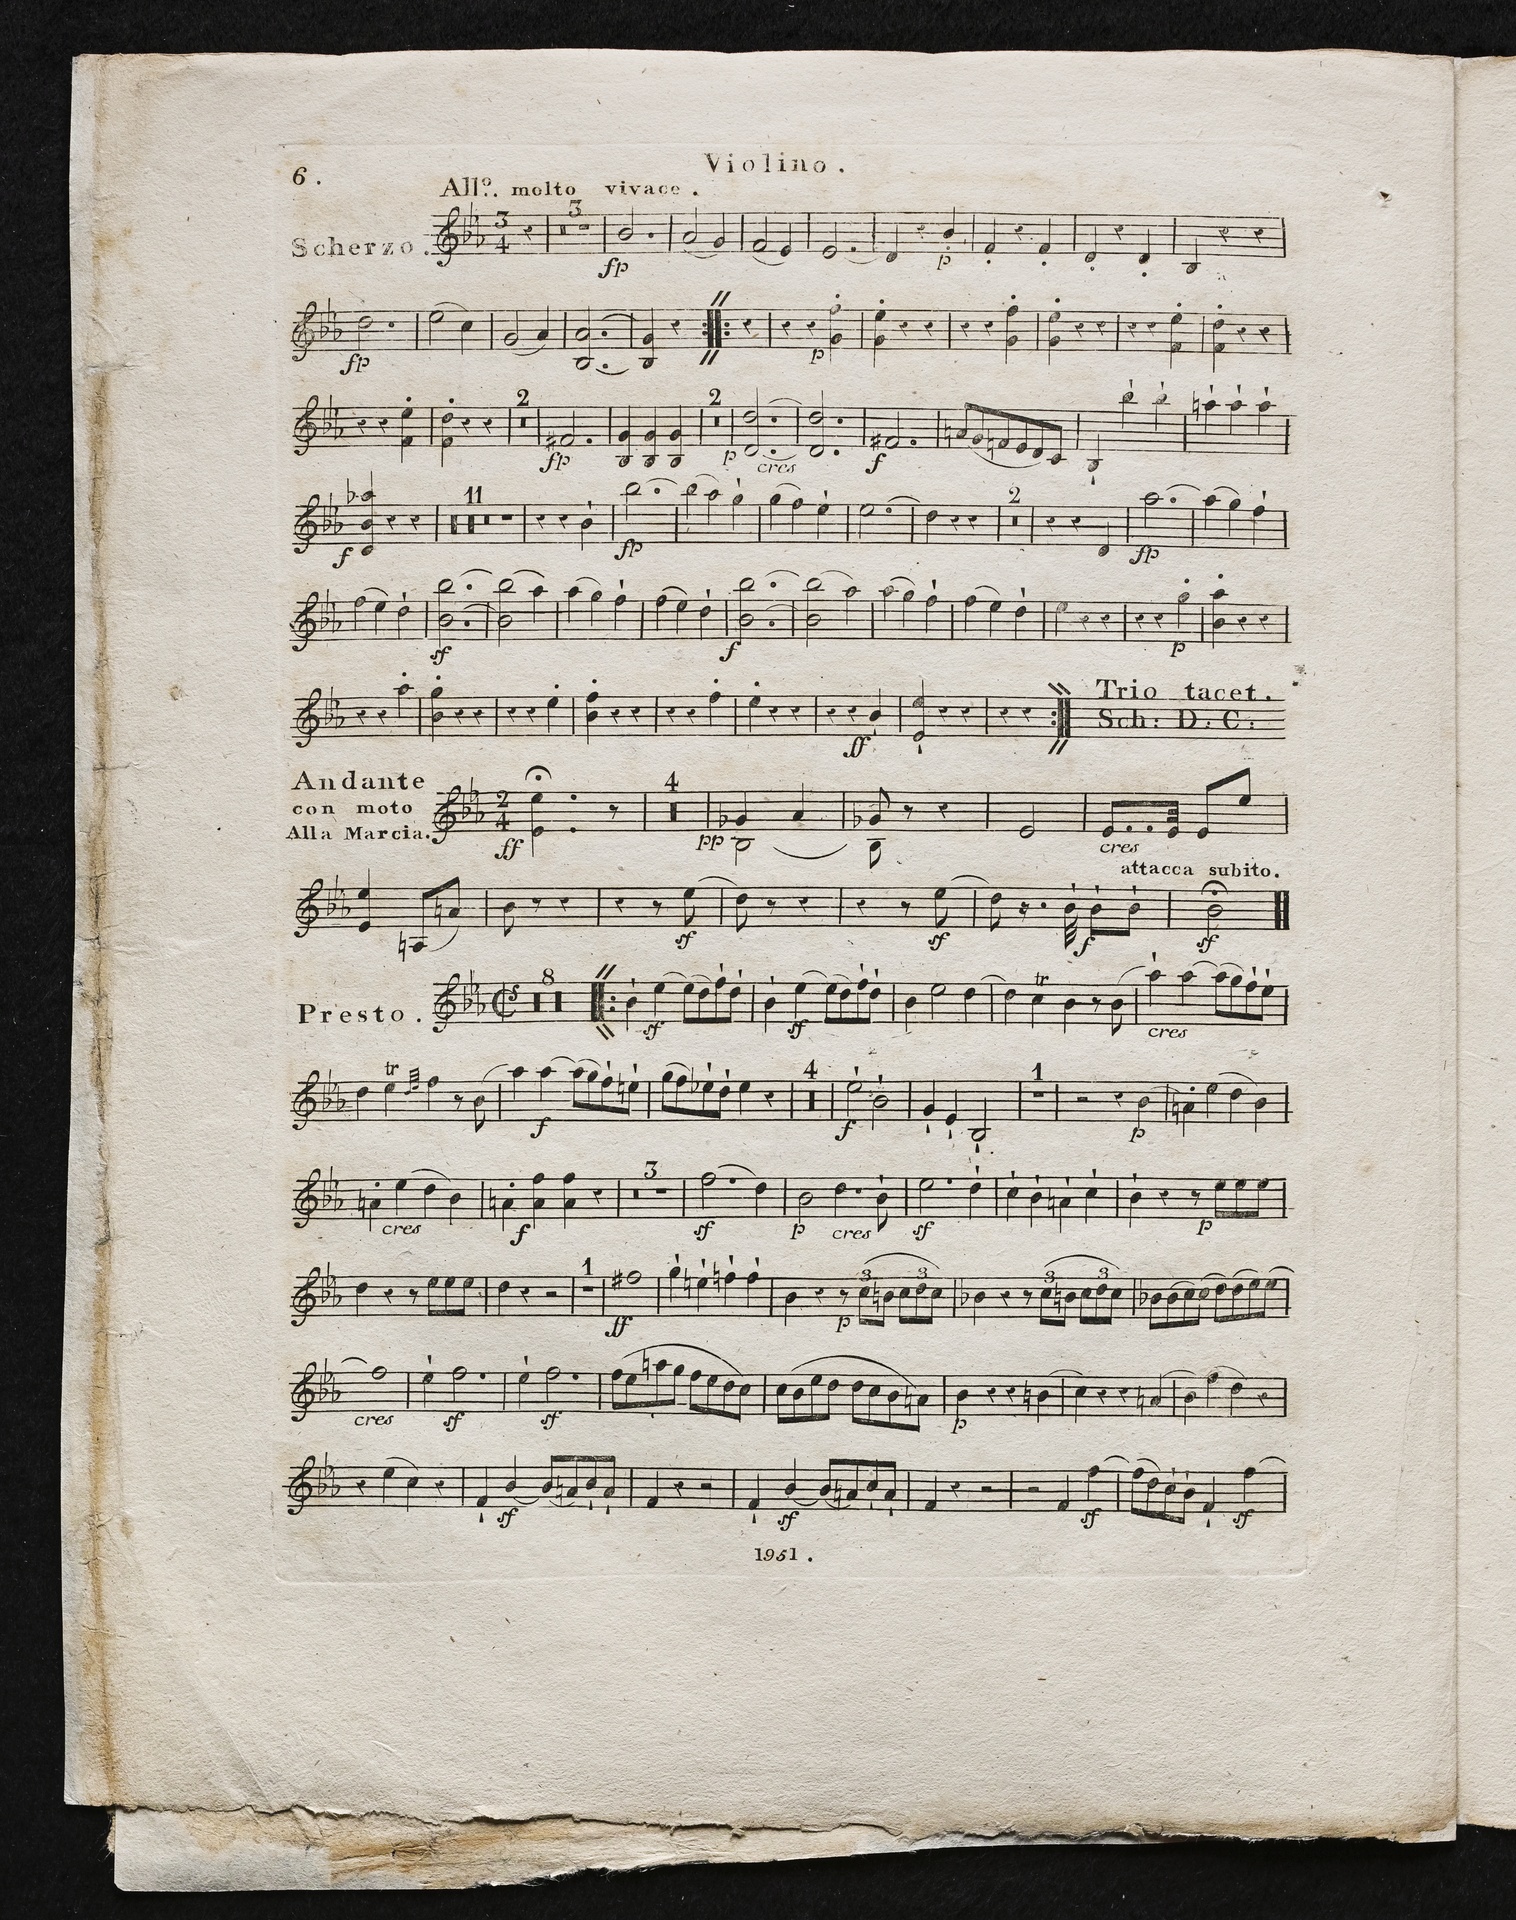 6.
Violino.
All.º molto vivace.
Scherzo.
3
4
3
fp
p
fp
p
2
2
fp
p
cres
f
11
2
f
fp
fp
sf
f
p
ff
Trio tacet.
Sch: D: C:
Andante
con moto
Alla Marcia.
2
4
4
ff
pp
cres
attacca subito.
sf
sf
f
sf
Presto.
8
sf
sf
tr
cres
tr
4
1
f
f
p
3
cres
f
sf
p
cres
sf
p
1
3
3
3
3
ff
p
cres
sf
sf
p
sf
sf
sf
sf
1951.